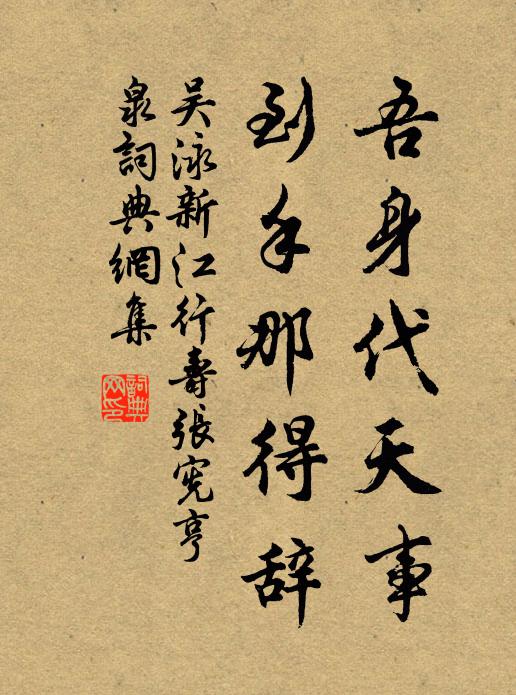 吾身代天事
到手那得辞
吴泳新江行壽張宪亨
泉詞典網集
詞典網印